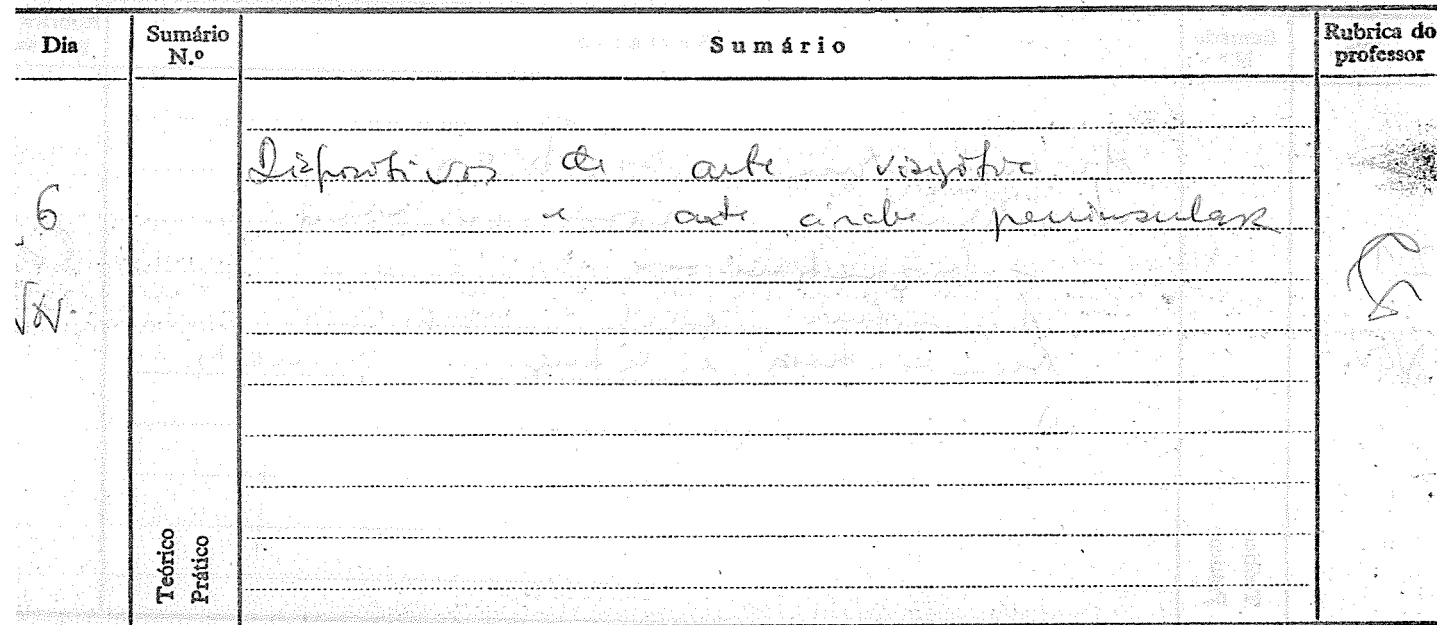 Dia Sumário N.º Sumário Rubrica do professor
Dispositivos de arte visigótica
6 e arte árabe peninsular
Teórico
Prático